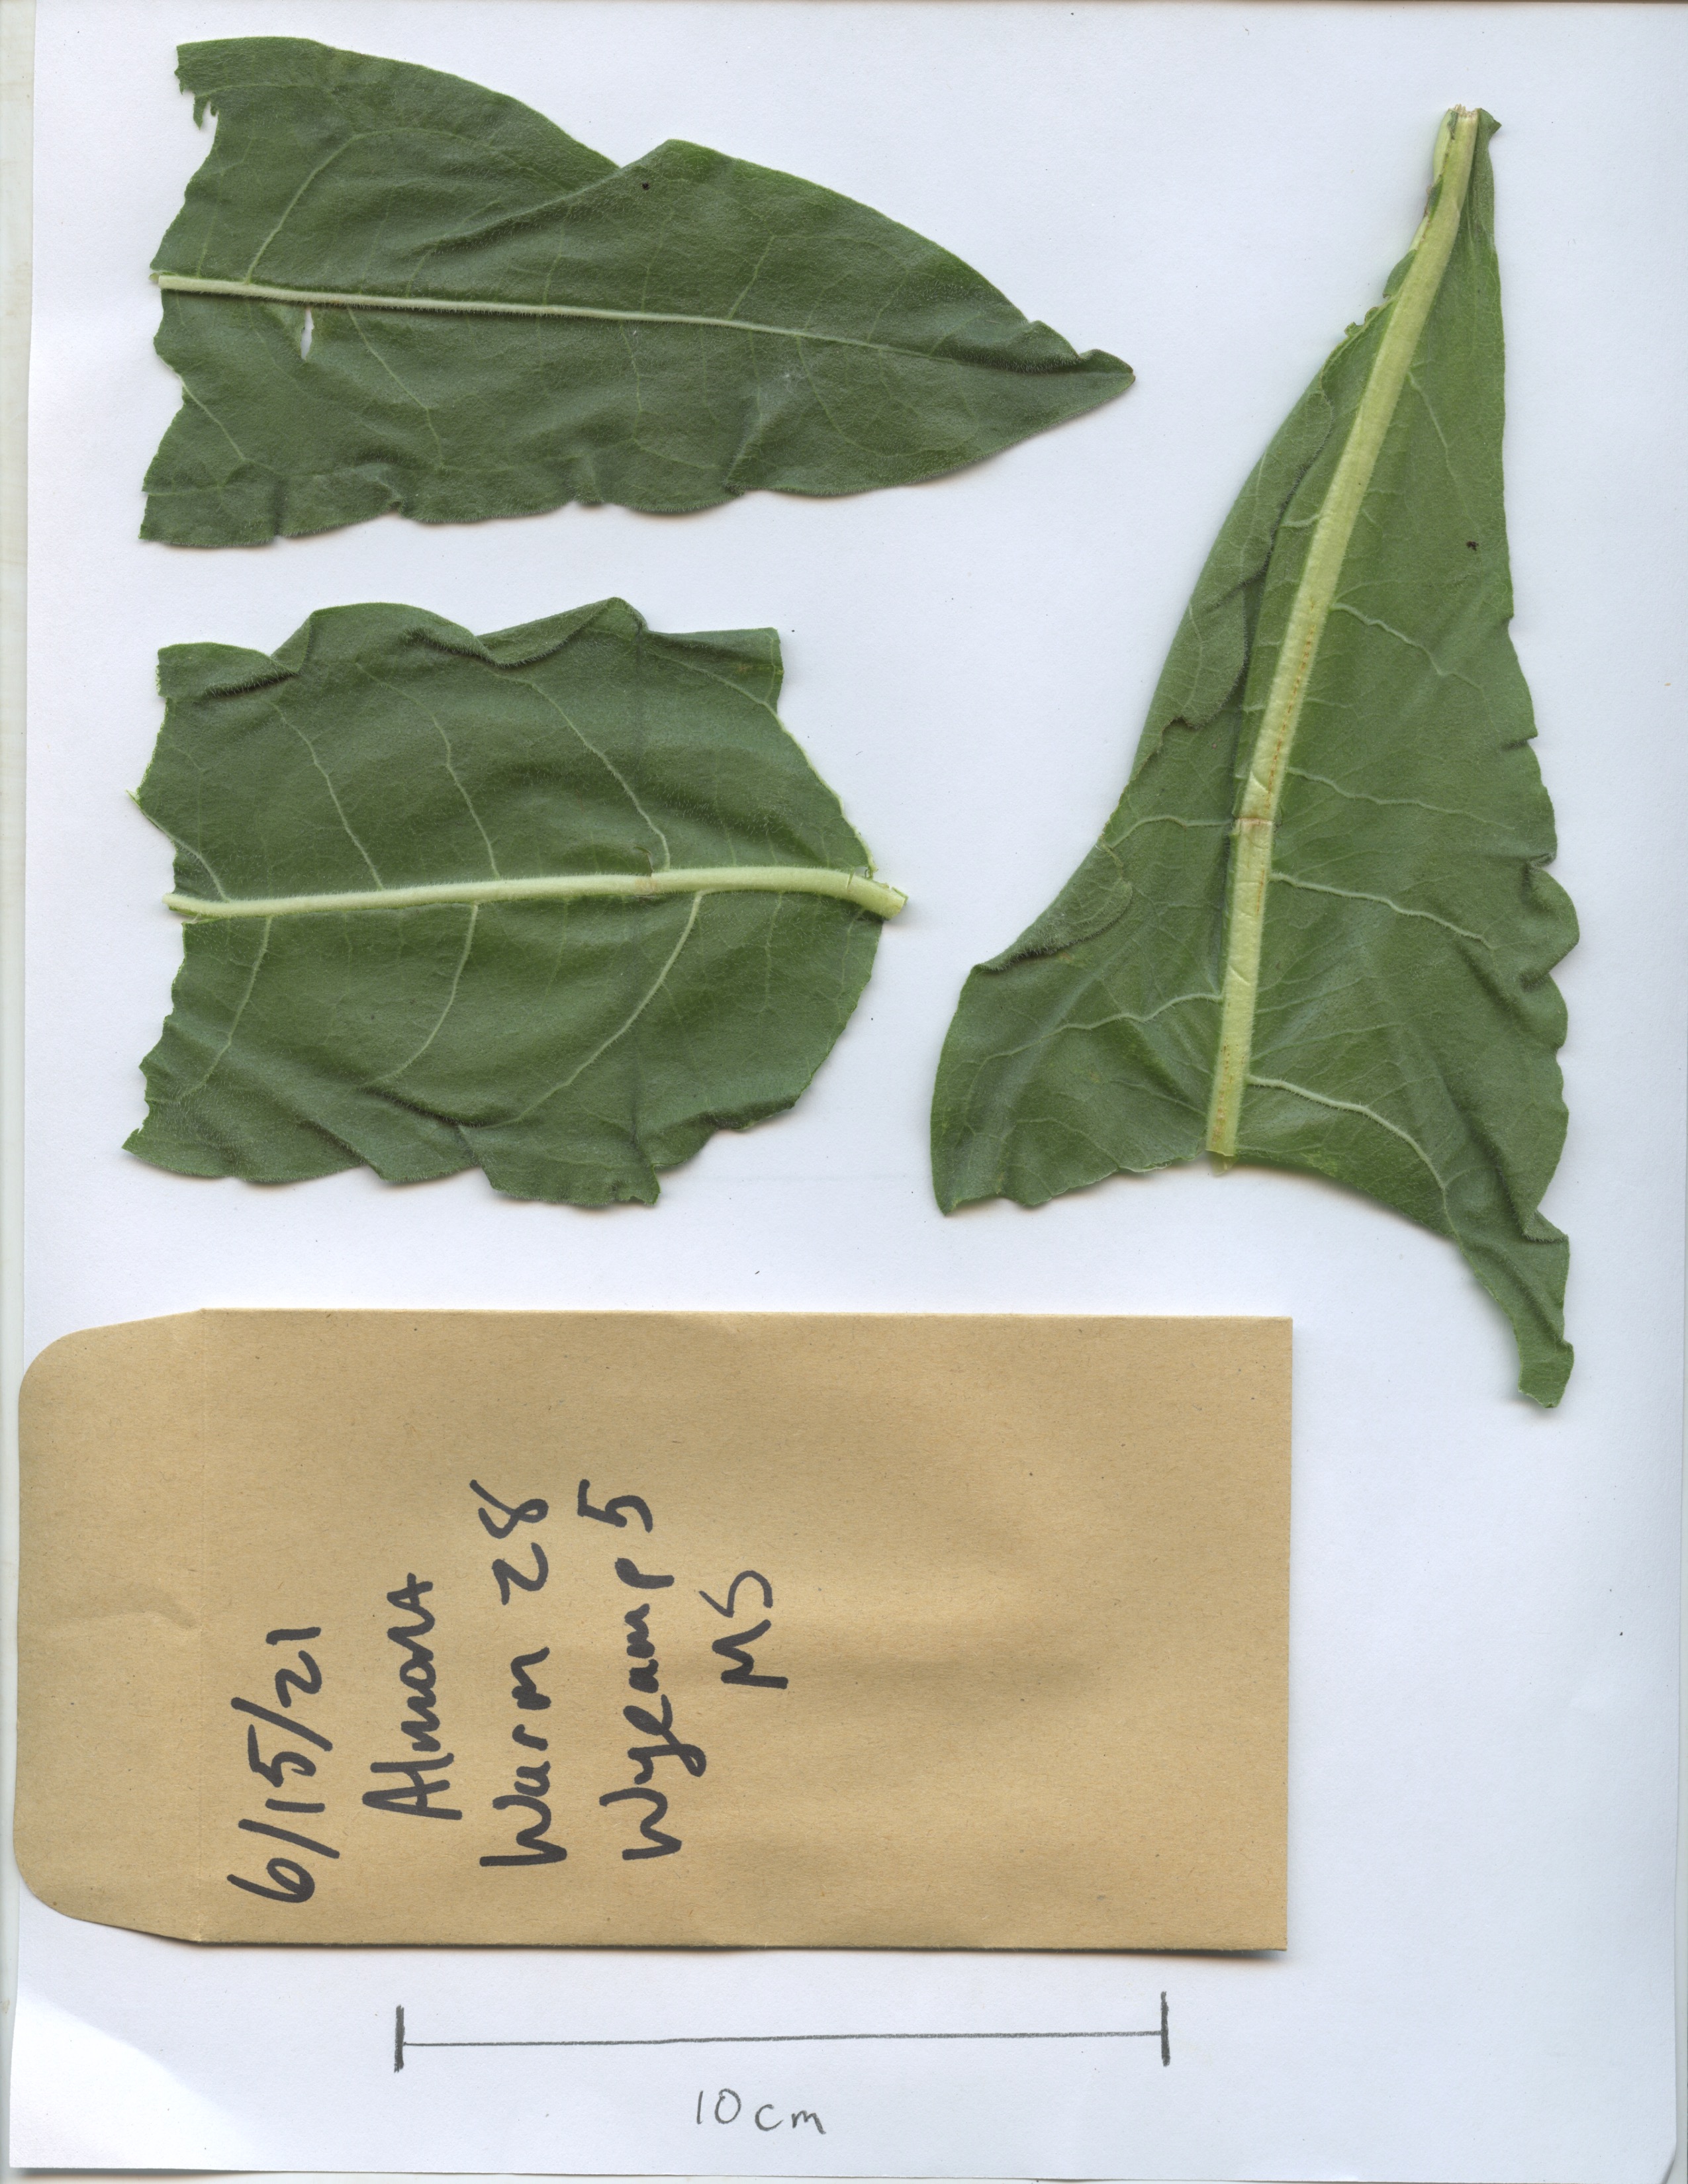 6/15/21
Almont
Warm 28
Wyeamp 5
MS
10 cm